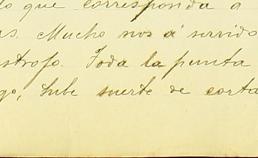 lo que corresponda a
as. Mucho nos á servido
strofo. Toda la punta
go, tube suerte de corta